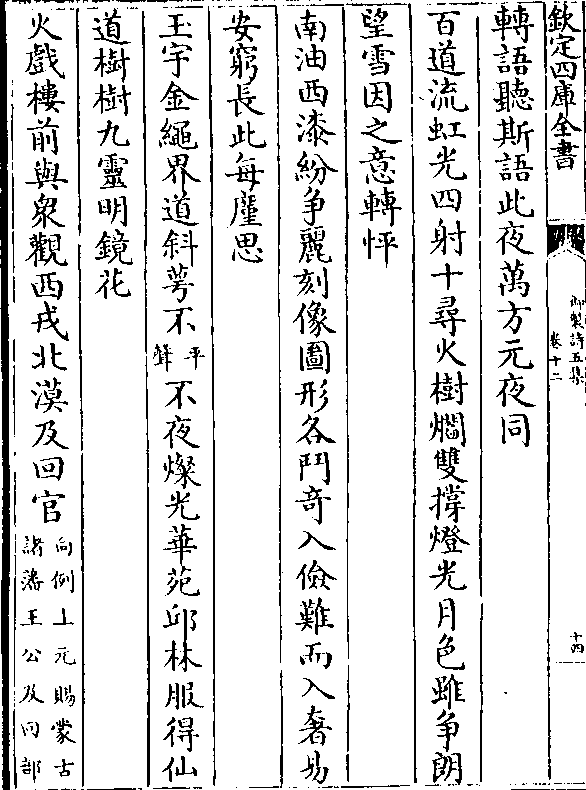 欽定四庫全書
御製詩五集
卷十二
十四
轉語聽斯語此夜萬方元夜同
百道流虹光四射十尋火樹爛雙撐燈光月色雖爭朗
望雪因之意轉怦
南油西漆紛爭麗刻像圖形各鬥奇入儉難而入奢易
安窮長此每廑思
玉宇金繩界道斜萼不平聲不夜燦光華苑邱林服得仙
道樹樹九靈明鏡花
火戲樓前與衆觀西戎北漠及回官向例上元賜蒙古諸藩王公及回部